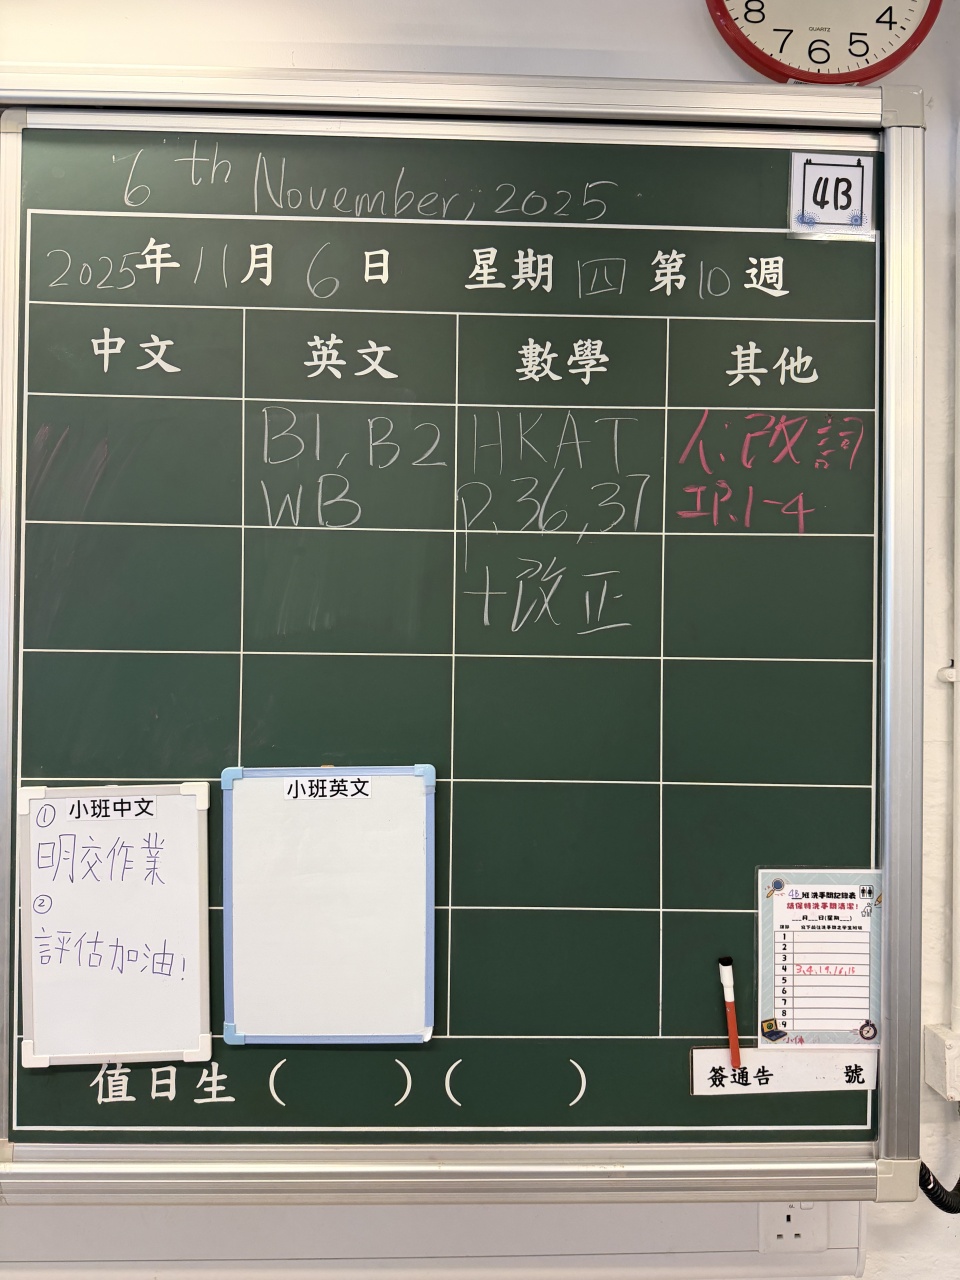 8 7 6 5 4
QUARTZ
6th November, 2025
4B
2025年11月6日 星期四 第10週
中文 英文 數學 其他
B1, B2
WB
HKAT
P.36,37
+改正
人:改詞
IP.1-4
小班中文
①
明交作業
②
評估加油!
小班英文
4B班洗手間記錄表
請保持洗手間清潔!
___月___日(星期___)
1
2
3
4 3,4,19,16,15
5
6
7
8
9
值日生( )( )
簽通告 號